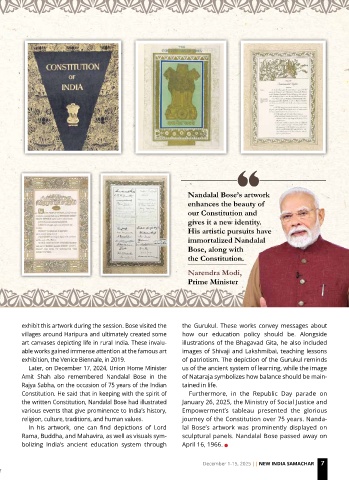 CONSTITUTION
OF
INDIA
Nandalal Bose's artwork
enhances the beauty of
our Constitution and
gives it a new identity.
His artistic pursuits have
immortalized Nandalal
Bose, along with
the Constitution.
Narendra Modi,
Prime Minister
exhibit this artwork during the session. Bose visited the
villages around Haripura and ultimately created some
art canvases depicting life in rural India. These invalu-
able works gained immense attention at the famous art
exhibition, the Venice Biennale, in 2019.
Later, on December 17, 2024, Union Home Minister
Amit Shah also remembered Nandalal Bose in the
Rajya Sabha, on the occasion of 75 years of the Indian
Constitution. He said that in keeping with the spirit of
the written Constitution, Nandalal Bose had illustrated
various events that give prominence to India's history,
religion, culture, traditions, and human values.
In his artwork, one can find depictions of Lord
Rama, Buddha, and Mahavira, as well as visuals sym-
bolizing India's ancient education system through
the Gurukul. These works convey messages about
how our education policy should be. Alongside
illustrations of the Bhagavad Gita, he also included
images of Shivaji and Lakshmibai, teaching lessons
of patriotism. The depiction of the Gurukul reminds
us of the ancient system of learning, while the image
of Nataraja symbolizes how balance should be main-
tained in life.
Furthermore, in the Republic Day parade on
January 26, 2025, the Ministry of Social Justice and
Empowerment's tableau presented the glorious
journey of the Constitution over 75 years. Nanda-
lal Bose's artwork was prominently displayed on
sculptural panels. Nandalal Bose passed away on
April 16, 1966.
December 1-15, 2025 || NEW INDIA SAMACHAR 7